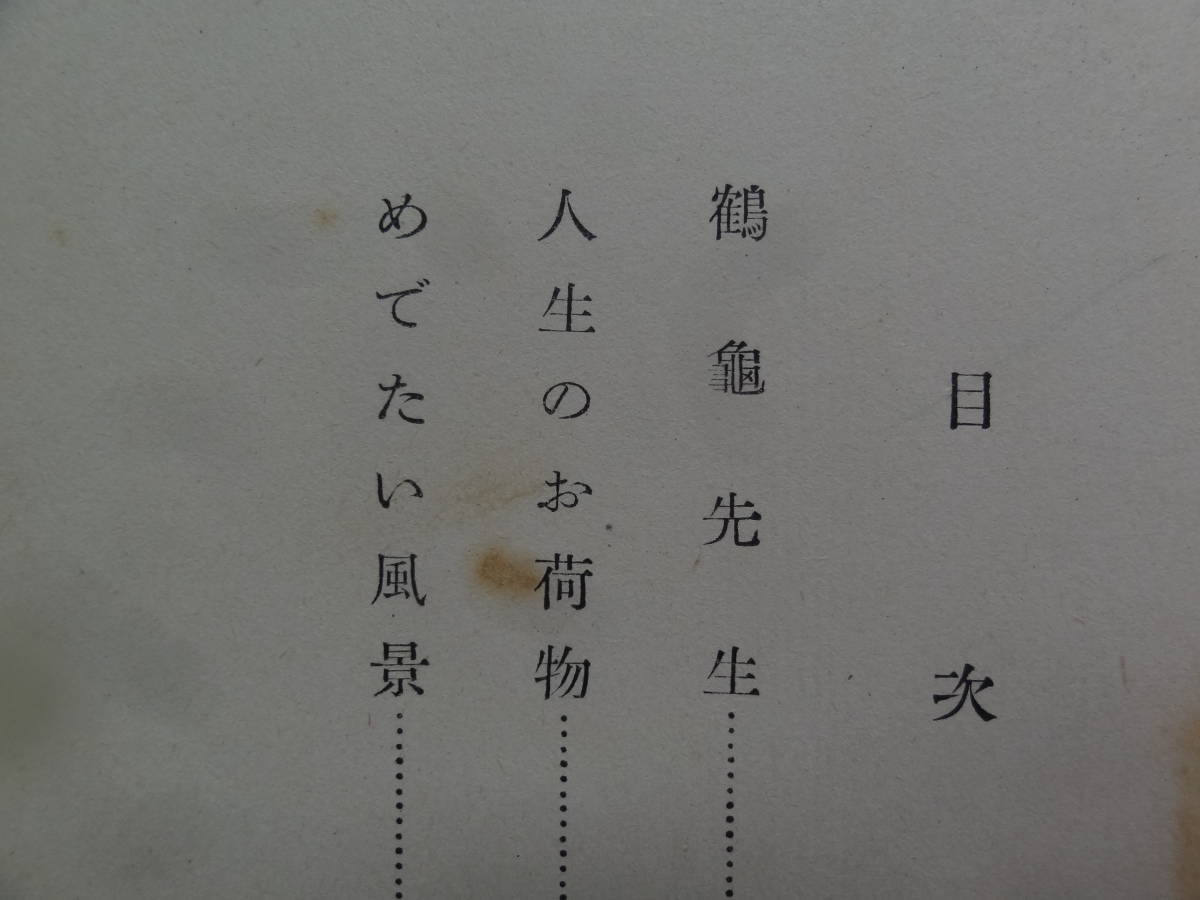 目次
鶴龜先生……
人生のお荷物……
めでたい風景……